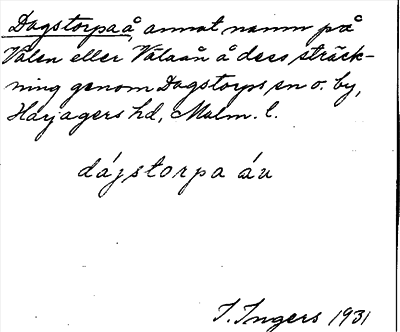 Dagstorpaå, annat namn på
Vålen eller Välaån å dess sträck-
ning genom Dagstorps sn o. by,
Harjagers hd, Malm. l.
dájstorpa áu
I. Ingers 1931